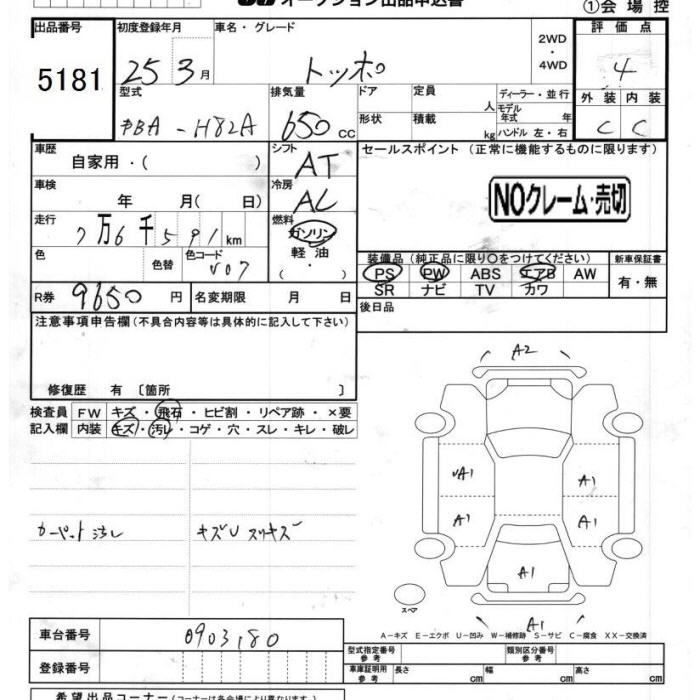 オークション出品申込書
①会場控
出品番号 初度登録年月 車名・グレード 2WD ・ 4WD 評価点
5181 25 3月 トッポ 4
型式 排気量 ドア 定員 人 ディーラー・並行 外装 内装
DBA - H82A 650 cc 形状 積載 kg モデル年式 年 ハンドル 左・右 C C
車歴 シフト セールスポイント (正常に機能するものに限ります)
自家用・( ) AT
車検 冷房 NOクレーム・売切
年 月( 日) AC
走行 燃料
7万6千591km ガソリン
軽油
・
色 色替 色コード V07 装備品 (純正品に限り○をつけてください) 新車保証書
PS PW ABS エアB AW 有・無
SR ナビ TV カワ
R券 9650 円 名変期限 月 日 後日品
注意事項申告欄 (不具合内容等は具体的に記入して下さい)
修復歴 有 〔箇所 〕
検査員 FW キズ・飛石・ヒビ割・リペア跡・×要
記入欄 内装 キズ・汚レ・コゲ・穴・スレ・キレ・破レ
カーペット汚レ キズU スリキズ
A2
UA1 A1
A1 A1
A1
スペア
A1
A-キズ E-エクボ U-凹み W-補修跡 S-サビ C-腐食 XX-交換済
車台番号 0903180
型式指定番号 参考 類別区分番号 参考
登録番号 車庫証明用 参考 長さ cm 幅 cm 高さ cm
希望出品コーナー (コーナーは各会場により異なります)